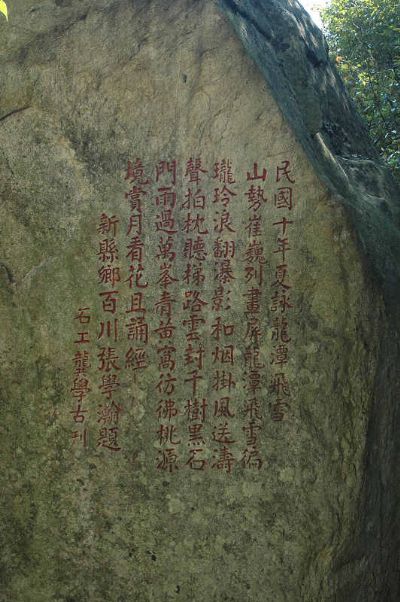 民國十年夏詠龍潭飛雪
山勢崔巍列畫屏龍潭飛雪徧
瓏玲浪翻瀑影和烟掛風送濤
聲拍枕聽梯路雲封千樹黑石
門雨過萬峯青黄寓彷彿桃源
境賞月看花且誦經
新縣鄉百川張學瀚題
石工龔學古刊